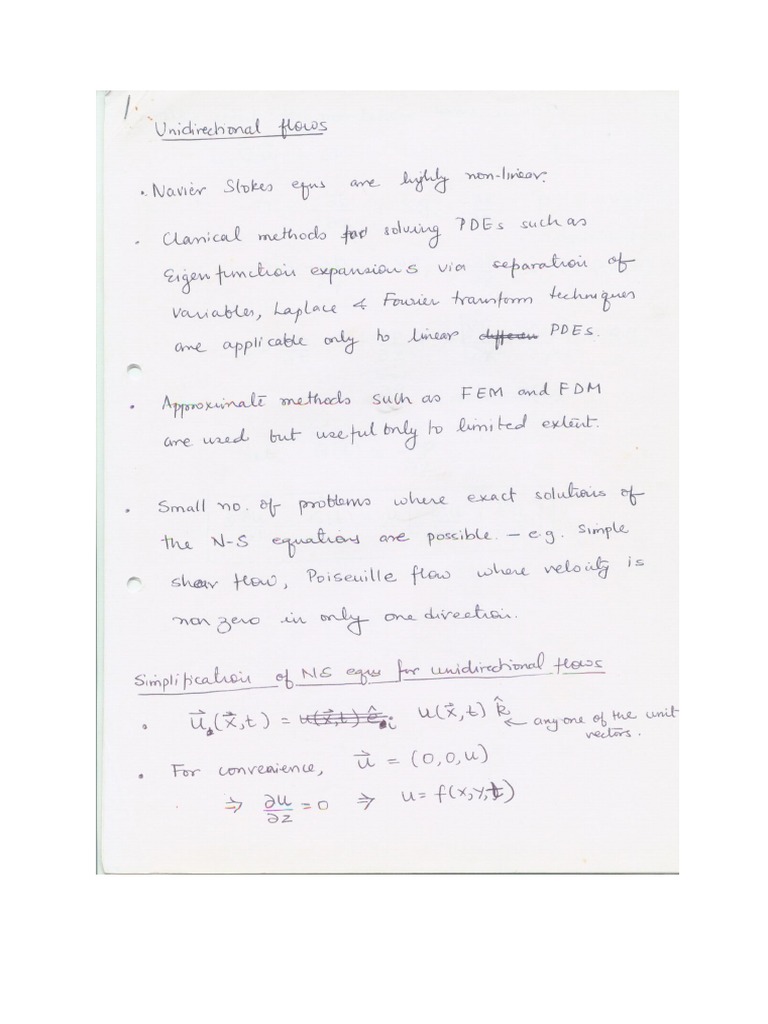 1.
Unidirectional flows
• Navier Stokes eqns are highly non-linear.
• Classical methods for solving PDEs such as
Eigen function expansions via separation of
variables, Laplace & Fourier transform techniques
are applicable only to linear differen PDEs.
• Approximate methods such as FEM and FDM
are used but useful only to limited extent.
• Small no. of problems where exact solutions of
the N-S equations are possible. – e.g. simple
shear flow, Poiseuille flow where velocity is
non zero in only one direction.
Simplification of NS eqns for unidirectional flows
• u⃗ (x⃗,t) = u(x⃗,t) ê_i u(x⃗,t) k̂ ← any one of the unit
vectors.
• For convenience, u⃗ = (0,0,u)
⇒ ∂u/∂z = 0 ⇒ u = f(x,y,t)